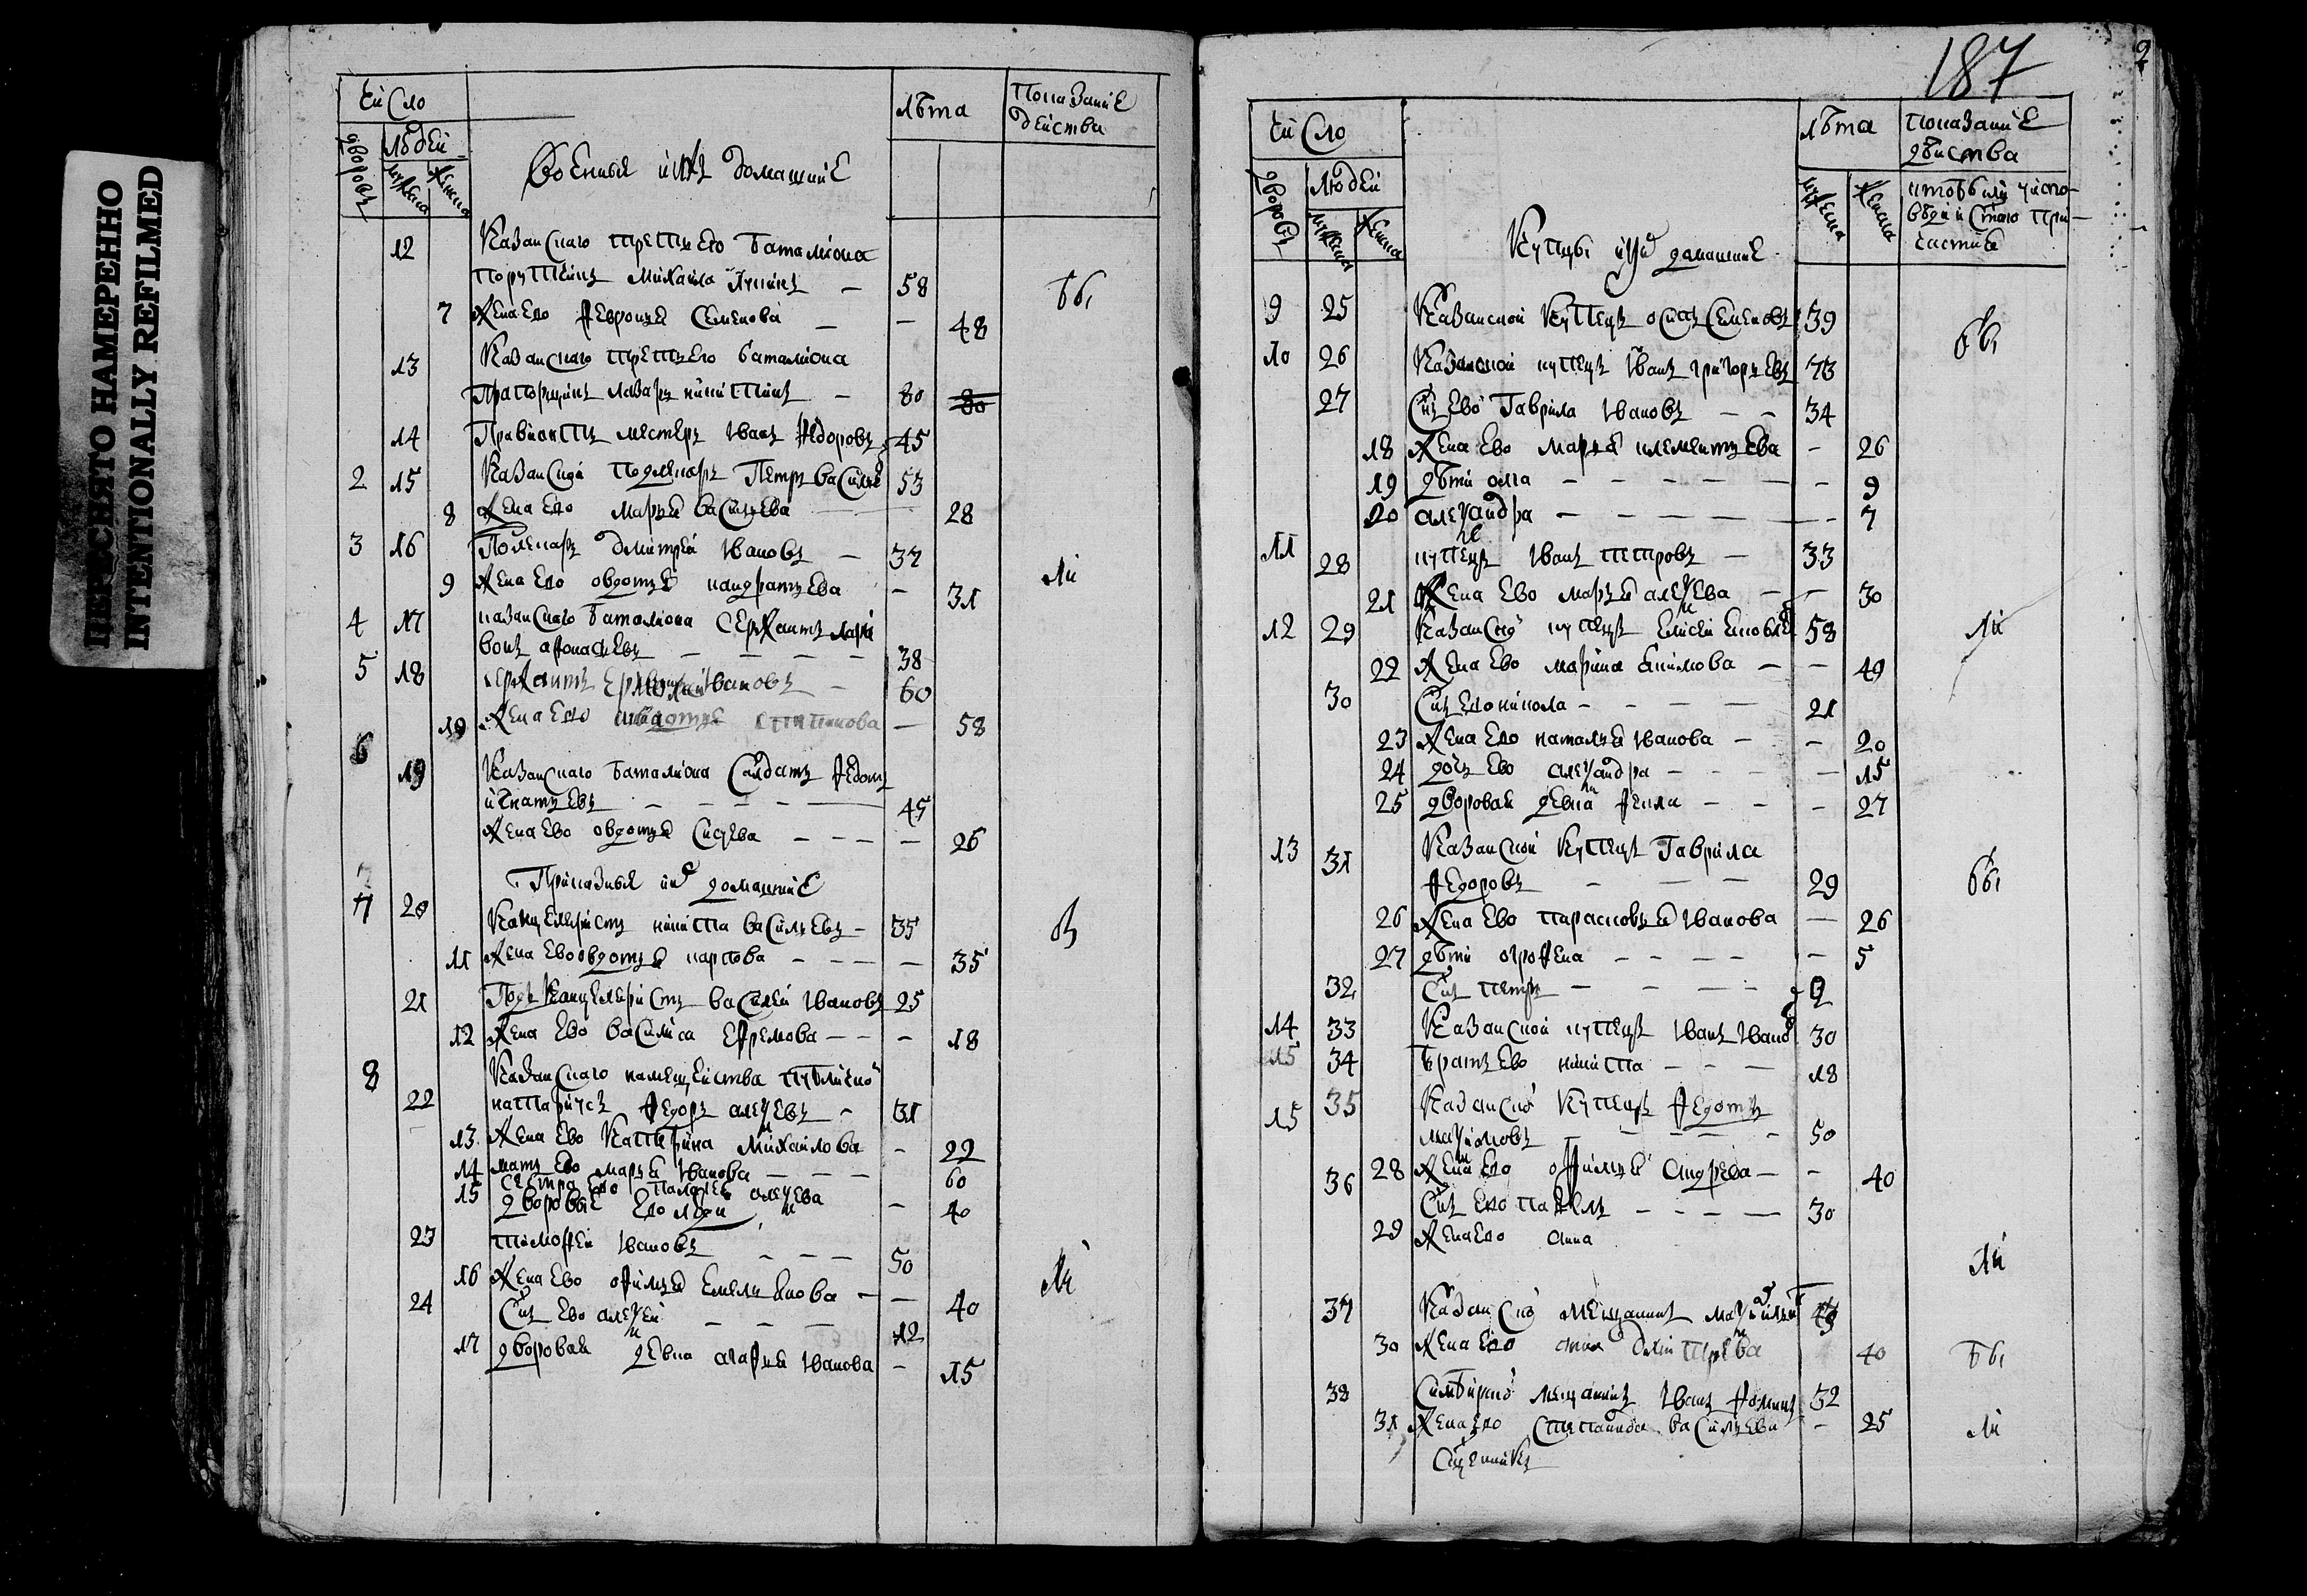 ПЕРЕСНЯТО НАМЕРЕННО
INTENTIONALLY REFILMED
Число
лѣта
Показание
действа
дворовъ
людей
мужеска
женска
Военныя и ихъ домашние
12 Казанскаго третьего баталиона
порутчикъ Михаила Лукинъ — 58
бы
7 Жена его Февронья Семенова — — 48
13 Казанскаго третьего баталиона
Прапорщикъ Лазарь Никитинъ — 80 80
14 Правиантъ местеръ Иванъ Федоровъ 45
2 15 Казанской подлекарь Петръ Василье 53
8 Жена его Марья Васильева 28
3 16 Полекарь Дмитрей Ивановъ — 37
9 Жена его Овдотья Кандратьева — 31
ли
4 17 казанскаго баталиона сержантъ Лари
вонъ Афонасьевъ — — — — 38
5 18 сержантъ Ермолай Ивановъ — 60
10 Жена его Степанова — 58
6
19 Казанскаго баталиона салдатъ Федотъ
Игнатьевъ — — — — 45
Жена ево Овдотья — — — — 26
Приказныя их домашние
7 20 Канцеляристъ Никита Васильевъ — 35
в
11 Жена ево Овдотья Карпова — — — — 35
21 Подканцеляристъ Василей Ивановъ 25
12 Жена ево Василиса Ефремова — — — 18
8 Казанскаго намещейства публично
22 натариусъ Федоръ Алексевъ — 31
13 Жена ево Катерина Михаилова — 29
14 мать ево Марья Иванова — — — 60
15 сестра ево Палагея Алексева — 40
дворовые ево люди
23 Тимофей Ивановъ — — — 50
16 Жена ево Офимья Емельянова — — 40
ли
24 Сынъ ево Алексей — — — 12
17 дворовая девка Агафья Иванова — 15
187
Число
лѣта
Показание
дѣиства
дворовъ
людей
мужеска
женска
мужеска
женска
кто были у испо-
вѣди и стаго при-
частия
Купцы и их домашние
9 25 Казанской купецъ Осипъ Семеновъ 39
бы
10 26 Казанской купецъ Иванъ Григорьевъ 73
27 Снъ ево Гаврила Ивановъ — — 34
18 Жена ево Марья Клементьева — 26
19 дѣти Анна — — — — — — 9
20 Александра — — — — — 7
11 28 купецъ Иванъ Петровъ — 33
21 Жена ево Марья Алексева — — 30
12 29 Казанско купецъ Елисей Яковле 58
ли
22 Жена ево Марина Якимова — — 49
30 Снъ его Никола — — — — 21
23 Жена его Наталья Иванова — — 20
24 дочь ево Александра — — — — 15
25 дворовая девка Фекла — — — 27
13 31 Казанской купецъ Гаврила
Федоровъ — — — 29
бы
26 Жена ево Парасковья Иванова — 26
27 дѣти Огрофена — — — — — 5
32 Снъ Петръ — — — — 2
14 33 Казанской купецъ Иванъ Ивано 30
15 34 Братъ ево Никита — — — 18
15 35 Казанско купецъ Федотъ
Максимовъ — — — — 50
28 Жена его Офимья Андрева — — 40
36 Снъ его Павелъ — — — — 30
29 Жена его Анна
ли
37 Казанско мещанинъ
30 Жена его Дмитрева 40
бы
38 Симбирско мещанинъ Иванъ Фоминъ 32
31 Жена его Степанида Васильева — 25
ли
Сщенникъ